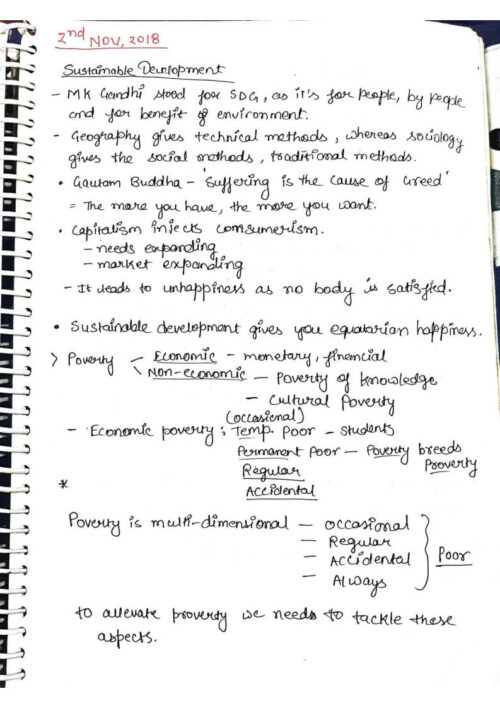 2nd Nov, 2018
Sustainable Development
- MK Gandhi stood for SDG, as it's for people, by people
and for benefit of environment.
- Geography gives technical methods, whereas sociology
gives the social methods, traditional methods.
• Gautam Buddha - 'Suffering is the cause of Greed'
= The more you have, the more you want.
• Capitalism injects consumerism.
- needs expanding
- market expanding
- It leads to unhappiness as no body is satisfied.
• Sustainable development gives you equatarian happiness.
> Poverty < Economic - monetary, financial
Non-economic - Poverty of knowledge
- Cultural Poverty
(occasional)
- Economic poverty : Temp. Poor - students
Permanent Poor - Poverty breeds
Proverty
Regular
*
Accidental
Poverty is multi-dimensional - occasional
- Regular
- Accidental } Poor
- Always
to allevate proverty we needs to tackle these
aspects.